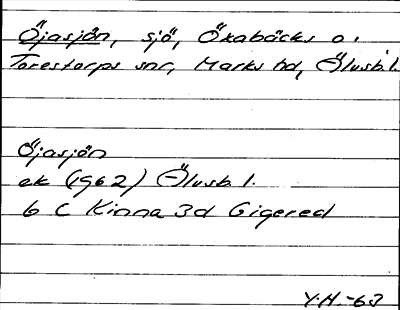 Öjasjön, sjö, Öxabäcks o.
Torestorps snr, Marks hd, Älvsb. l.
Öjasjön
ek (1962) Älvsb. l.
6 C Kinna 3d Gigered
Y.H.-63